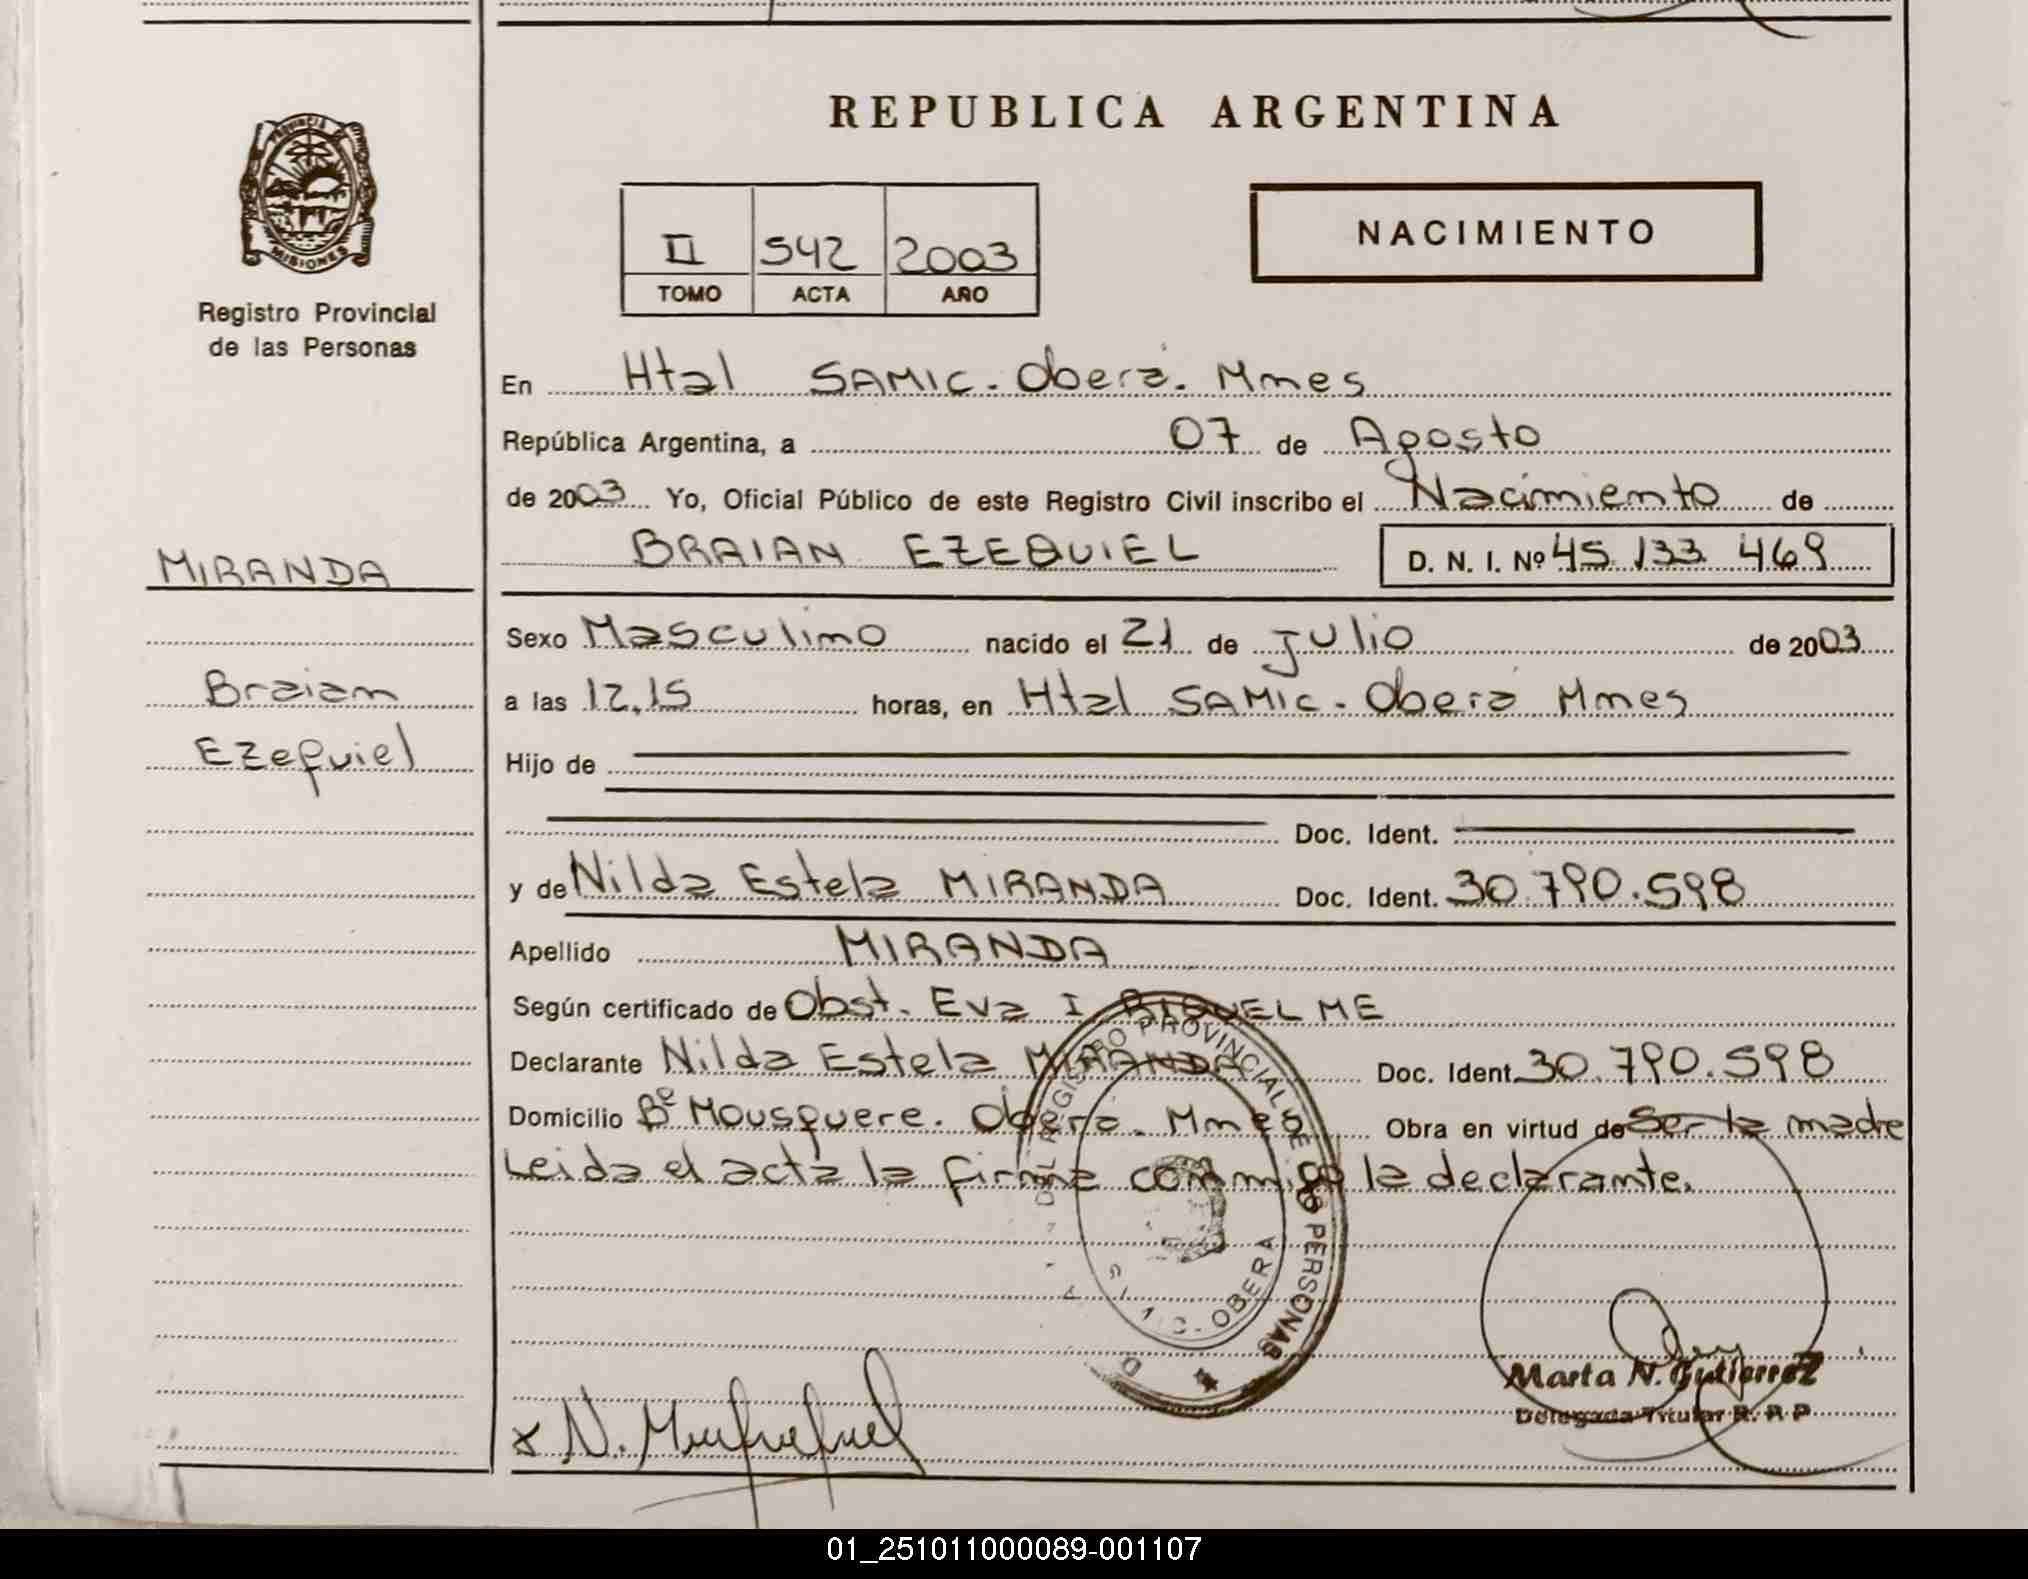 REPUBLICA ARGENTINA
PROVINCIA DE
MISIONES
Registro Provincial
de las Personas
II 542 2003
TOMO ACTA AÑO
NACIMIENTO
En Htal SAMIC. Oberá. Mnes
República Argentina, a 07 de Agosto
de 2003 Yo, Oficial Público de este Registro Civil inscribo el Nacimiento de
BRAIAN EZEQUIEL D. N. I. Nº 45 133 469
MIRANDA
Braian
Ezequiel
Sexo Masculino nacido el 21 de Julio de 2003
a las 12,15 horas, en Htal SAMIC. Oberá Mnes
Hijo de
Doc. Ident.
y de Nilda Estela MIRANDA Doc. Ident. 30.790.598
Apellido MIRANDA
Según certificado de Obst. Eva I RIQUELME
Declarante Nilda Estela MIRANDA Doc. Ident. 30.790.598
Domicilio Bº Mousquere. Oberá. Mnes Obra en virtud de ser la madre
Leida el acta la firma conmigo la declarante.
REGISTRO PROVINCIAL DE LAS PERSONAS
OBERA
Marta N. Gutierrez
Delegada Titular R. P. P
x N.
01_251011000089-001107